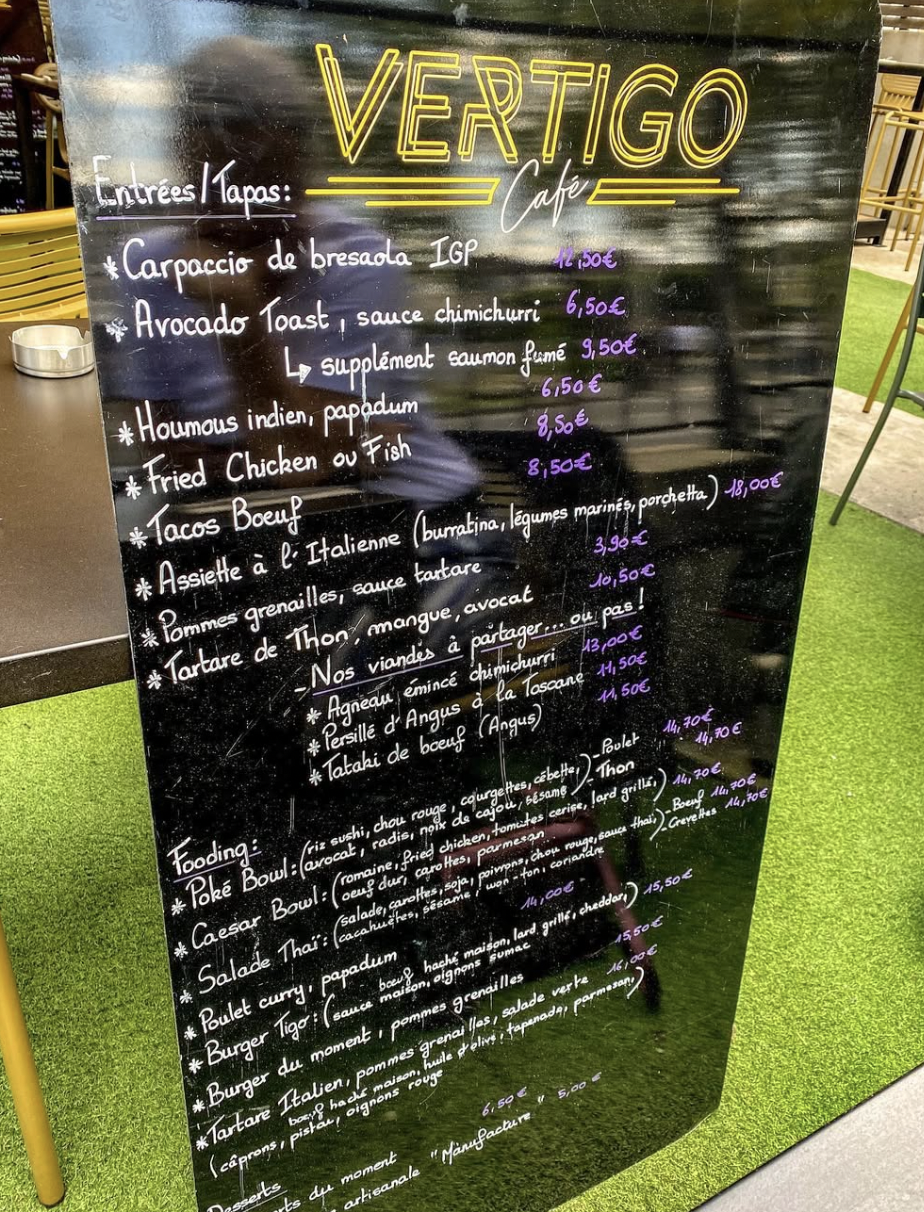 VERTIGO
Café
Entrées/Tapas:
* Carpaccio de bresaola IGP 12,50€
* Avocado Toast, sauce chimichurri 6,50€
↳ supplément saumon fumé 9,50€
* Houmous indien, papadum 6,50€
* Fried Chicken ou Fish 8,50€
* Tacos Boeuf 8,50€
* Assiette à l'Italienne (burratina, légumes marinés, porchetta) 18,00€
* Pommes grenailles, sauce tartare 3,90€
* Tartare de Thon, mangue, avocat 10,50€
- Nos viandes à partager... ou pas!
* Agneau émincé chimichurri 13,00€
* Persillé d'Angus à la Toscane 11,50€
* Tataki de boeuf (Angus) 11,50€
Fooding:
* Poké Bowl: (riz sushi, chou rouge, courgettes, cébette, - Poulet 14,70€
avocat, radis, noix de cajou, sésame) - Thon 14,70€
* Caesar Bowl: (romaine, fried chicken, tomates cerise, lard grillé, 14,70€
oeuf dur, carottes, parmesan)
* Salade Thaï: (salade, carottes, soja, poivrons, chou rouge, sauce thaï, - Boeuf 14,70€
cacahuètes, sésame, won-ton, coriandre) - Crevettes 14,70€
* Poulet curry, papadum 14,00€
* Burger Tigo: (boeuf haché maison, lard grillé, cheddar, 15,50€
sauce maison, oignons sumac)
* Burger du moment, pommes grenailles 15,50€
* Tartare Italien, pommes grenailles, salade verte 16,00€
(boeuf haché maison, huile d'olive, tapenade, parmesan,
câprons, pistou, oignons rouge)
Desserts
du moment 6,50€
artisanale "Manufacture" 5,00€